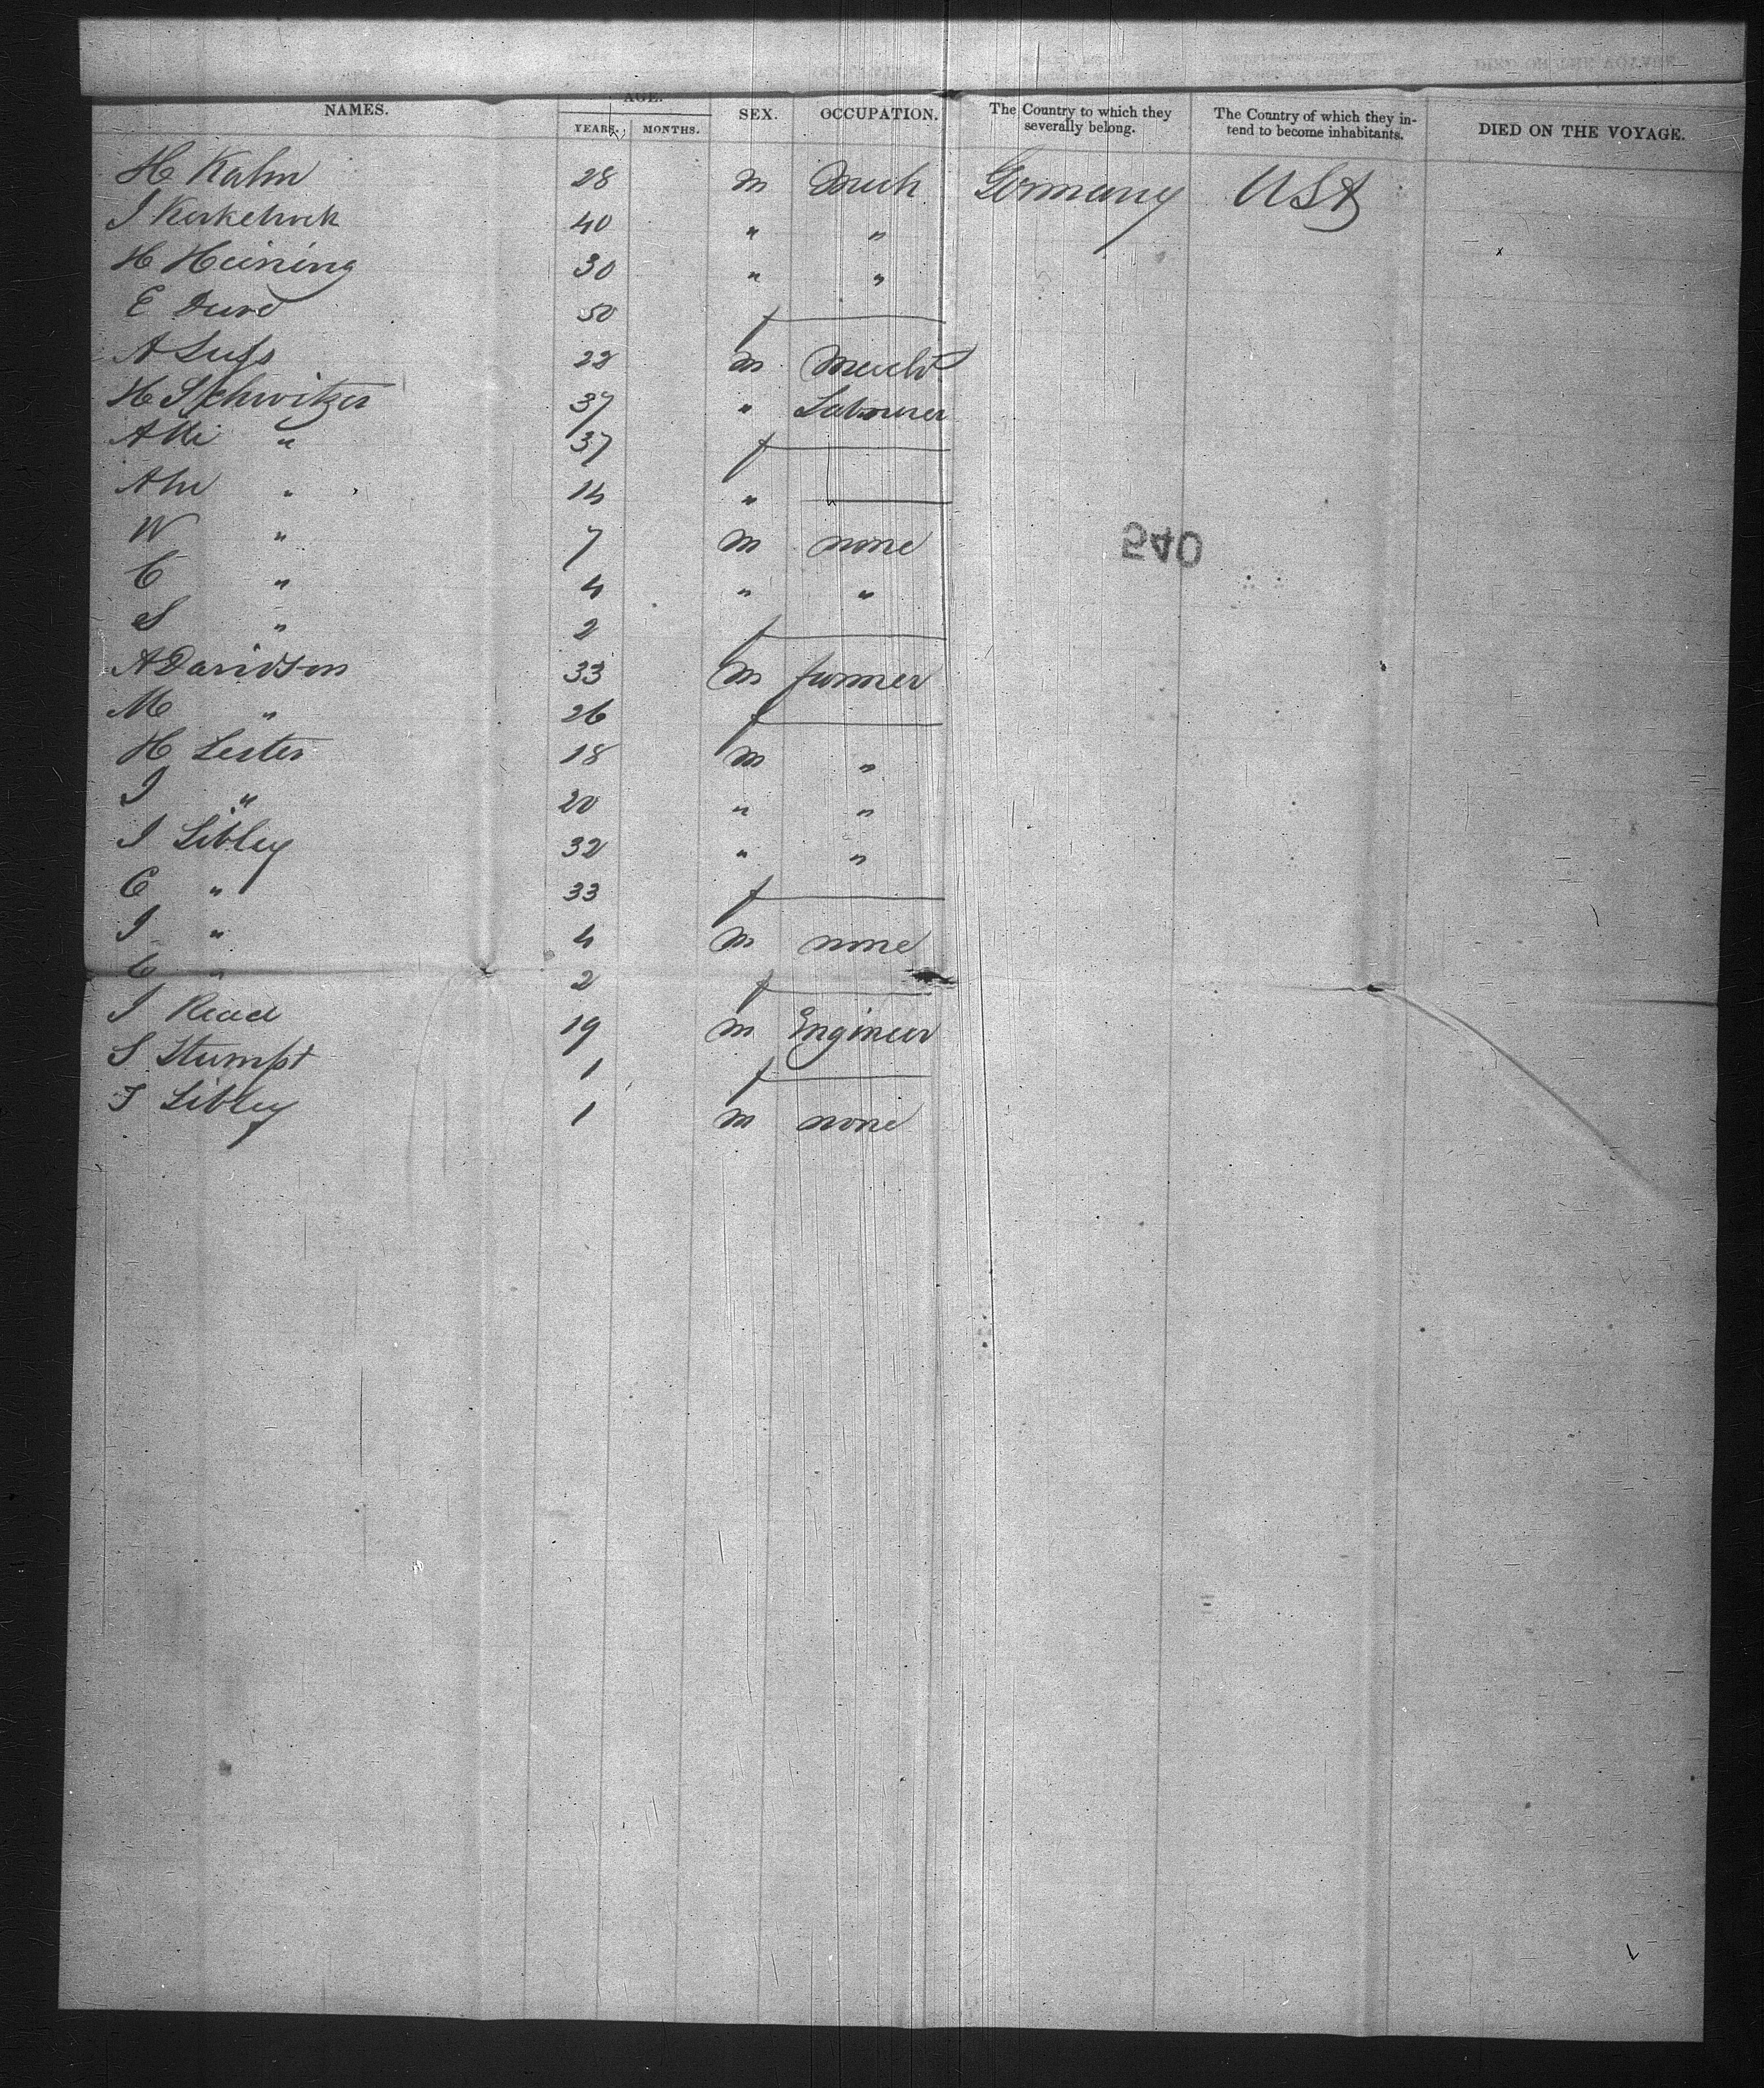 NAMES. AGE. SEX. OCCUPATION. The Country to which they severally belong. The Country of which they intend to become inhabitants. DIED ON THE VOYAGE.
YEARS. MONTHS.
H Kahn 28 m Mech Germany USA
J 40 " "
H Heining 30 " "
E 50 f
A 22 m Mecht
H Schwitzer 37 " Labourer
" 37 f
" 14 "
W " 7 m none
C " 4 " "
S " 2 f
A Davidson 33 m farmer
M " 26 f
H Lester 18 m "
J " 20 " "
J Sibley 32 " "
C " 33 f
J " 4 m none
C " 2 f
J Read 19 m Engineer
S Stumpf 1 f
J Sibley 1 m none
540